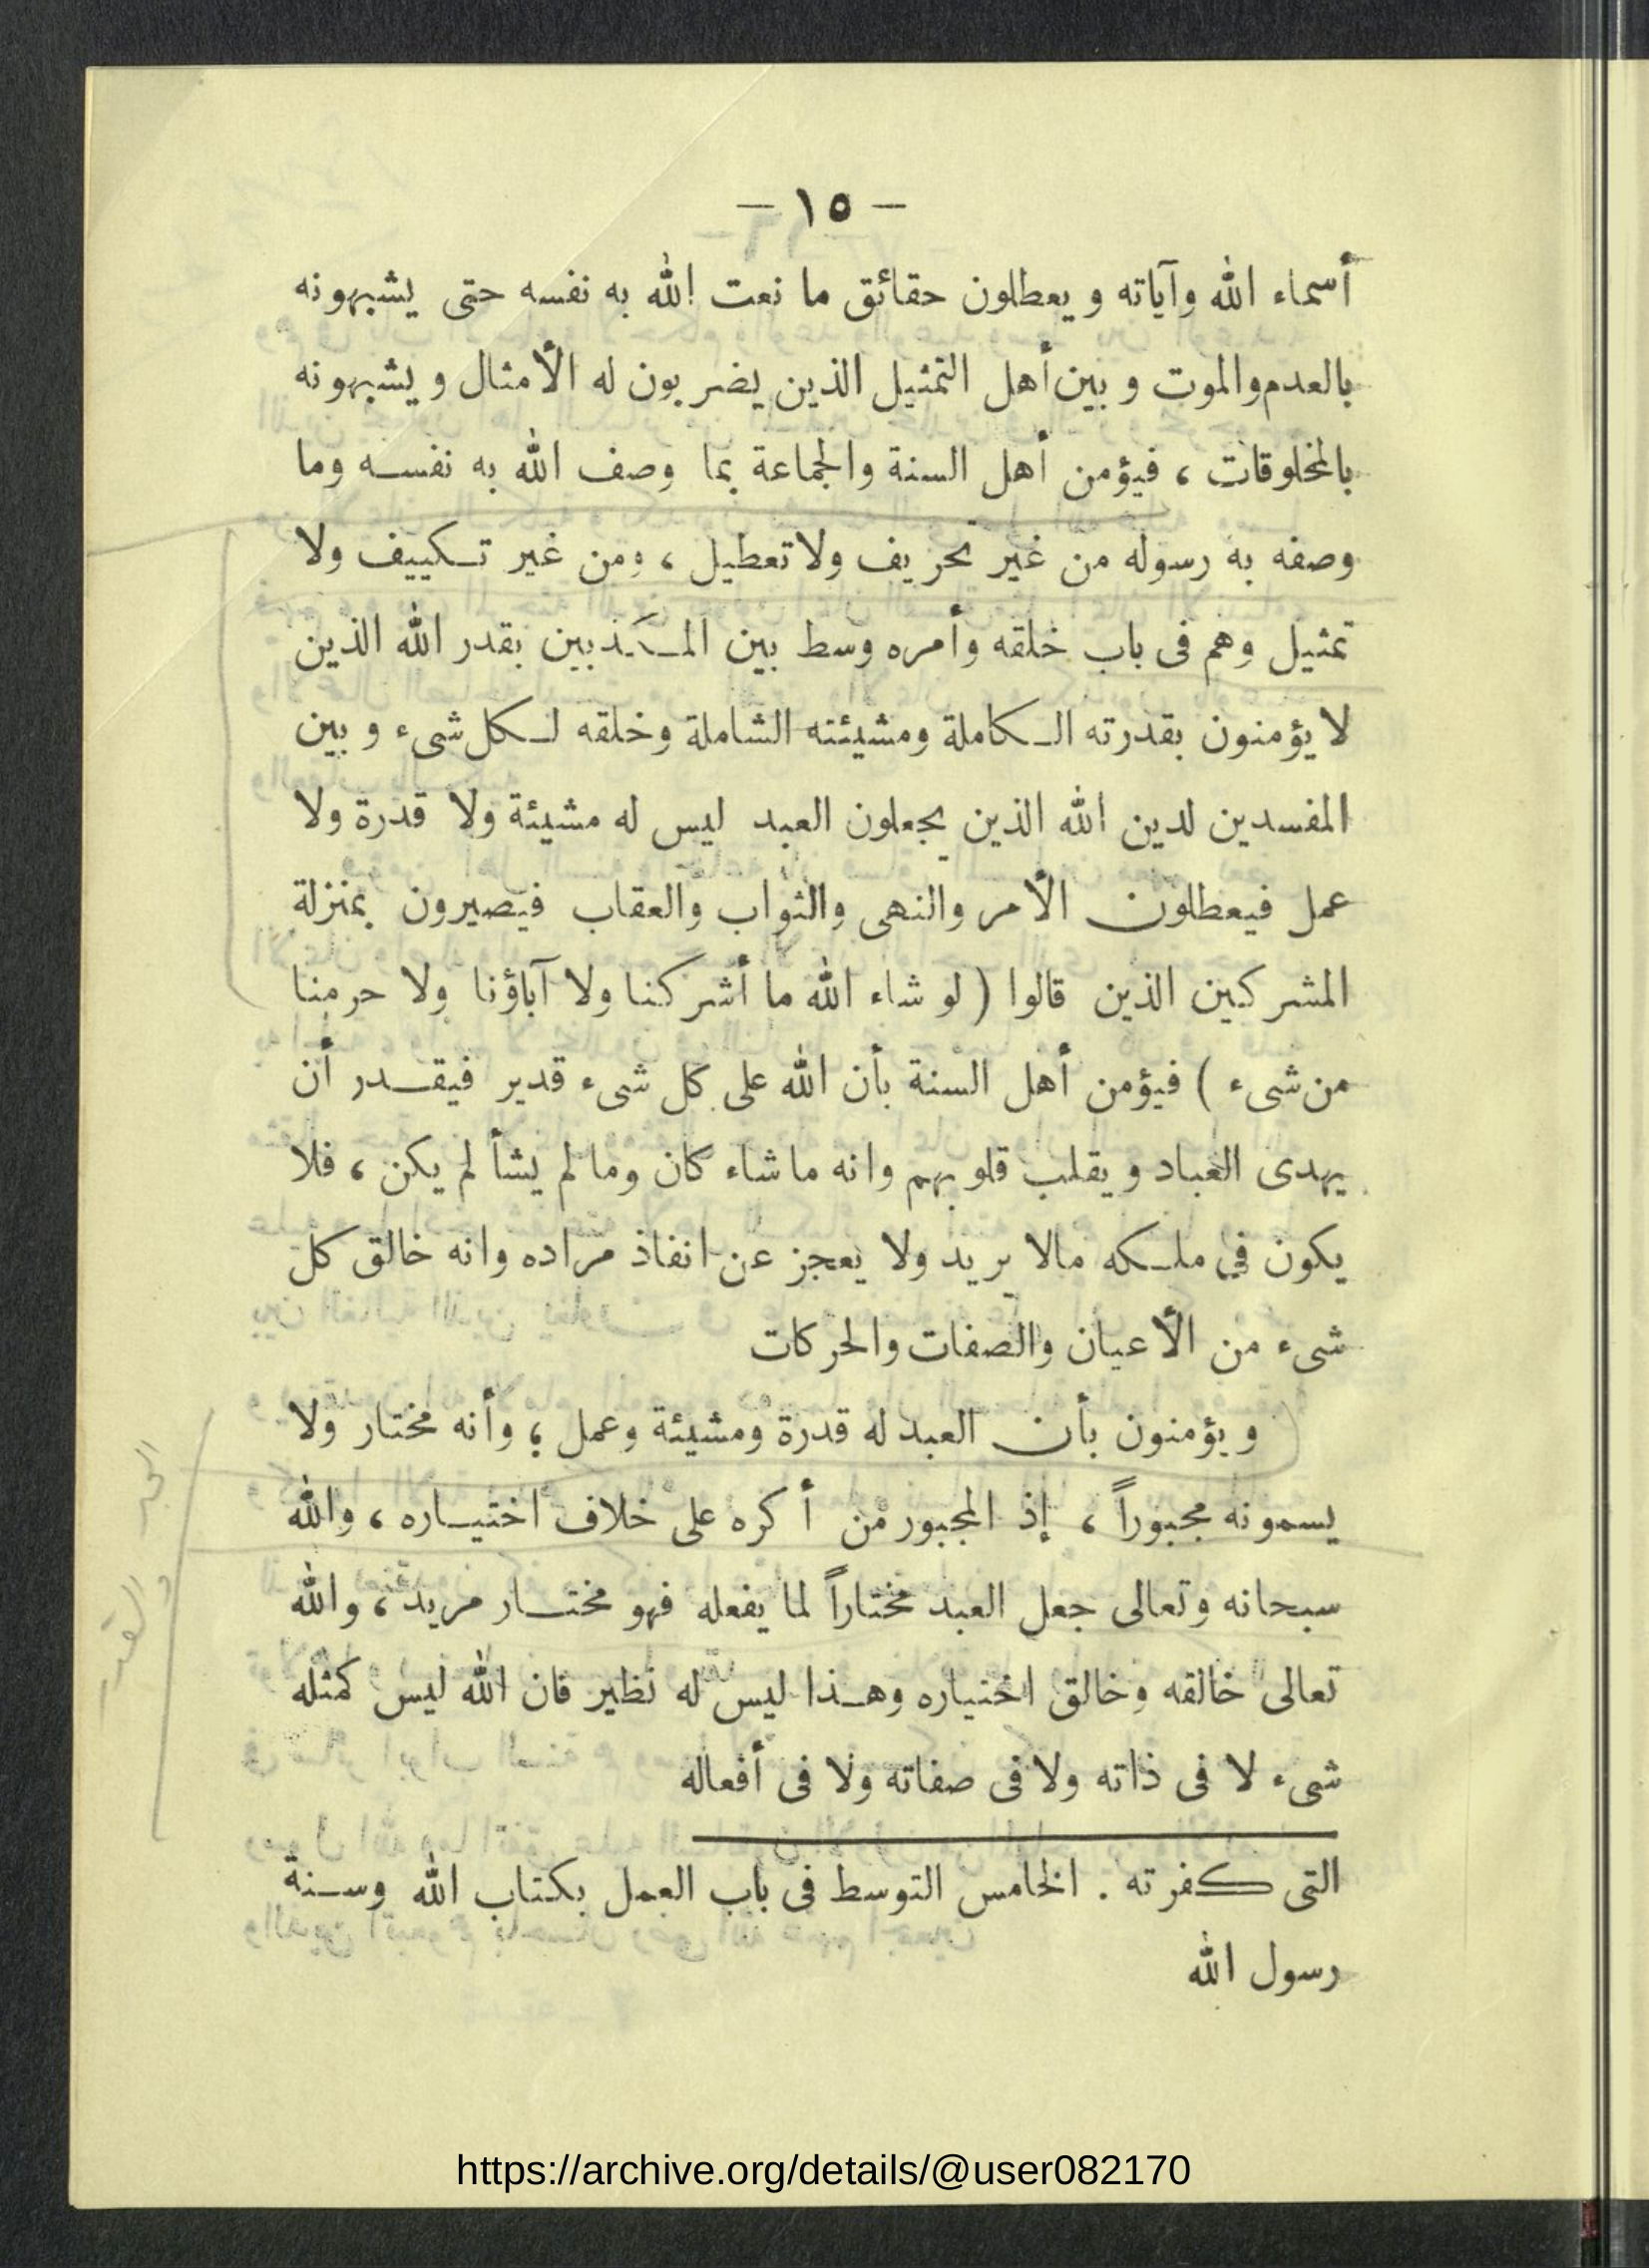 — ١٥ —
أسماء الله وآياته ويعطلون حقائق ما نعت الله به نفسه حتى يشبهونه
بالعدم والموت وبين أهل التمثيل الذين يضربون له الأمثال ويشبهونه
بالمخلوقات ، فيؤمن أهل السنة والجماعة بما وصف الله به نفسه وما
وصفه به رسوله من غير تحريف ولا تعطيل ، ومن غير تكييف ولا
تمثيل وهم فى باب خلقه وأمره وسط بين المكذبين بقدر الله الذين
لا يؤمنون بقدرته الكاملة ومشيئته الشاملة وخلقه لكل شىء وبين
المفسدين لدين الله الذين يجعلون العبد ليس له مشيئة ولا قدرة ولا
عمل فيعطلون الأمر والنهى والثواب والعقاب فيصيرون بمنزلة
المشركين الذين قالوا ( لو شاء الله ما أشركنا ولا آباؤنا ولا حرمنا
من شىء ) فيؤمن أهل السنة بأن الله على كل شىء قدير فيقدر أن
يهدى العباد ويقلب قلوبهم وانه ما شاء كان وما لم يشأ لم يكن ، فلا
يكون في ملكه مالا يريد ولا يعجز عن انفاذ مراده وانه خالق كل
شىء من الأعيان والصفات والحركات
ويؤمنون بأن العبد له قدرة ومشيئة وعمل ، وأنه مختار ولا
يسمونه مجبوراً ، إذ المجبور من أكره على خلاف اختياره ، والله
سبحانه وتعالى جعل العبد مختاراً لما يفعله فهو مختار مريد ، والله
تعالى خالقه وخالق اختياره وهذا ليس له نظير فان الله ليس كمثله
شىء لا فى ذاته ولا فى صفاته ولا فى أفعاله
التى كفرته . الخامس التوسط فى باب العمل بكتاب الله وسنة
رسول الله
https://archive.org/details/@user082170